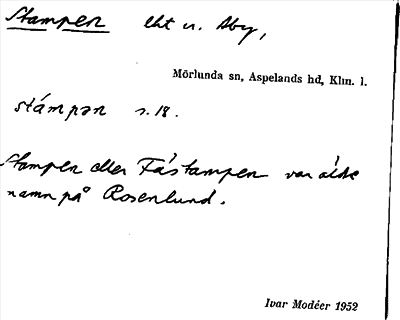 Stampen lht u. Åby,
Mörlunda sn, Aspelands hd, Klm. l.
stámpən s. 18.
Stampen eller Fåstampen var äldre
namn på Rosenlund.
Ivar Modéer 1952